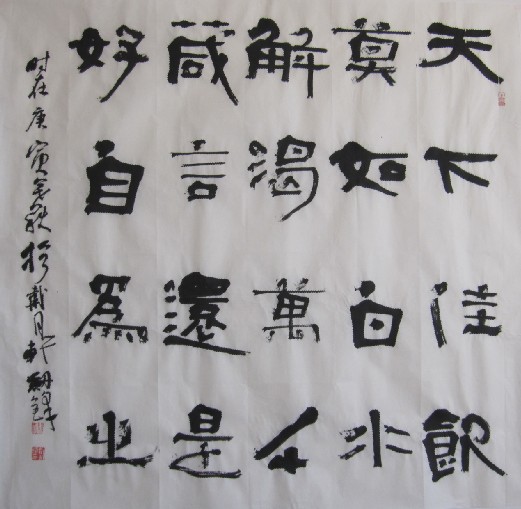 天下佳飲
莫如白水
解渴萬千
箴言還是
好自為之
时在庚寅年秋於戴月轩